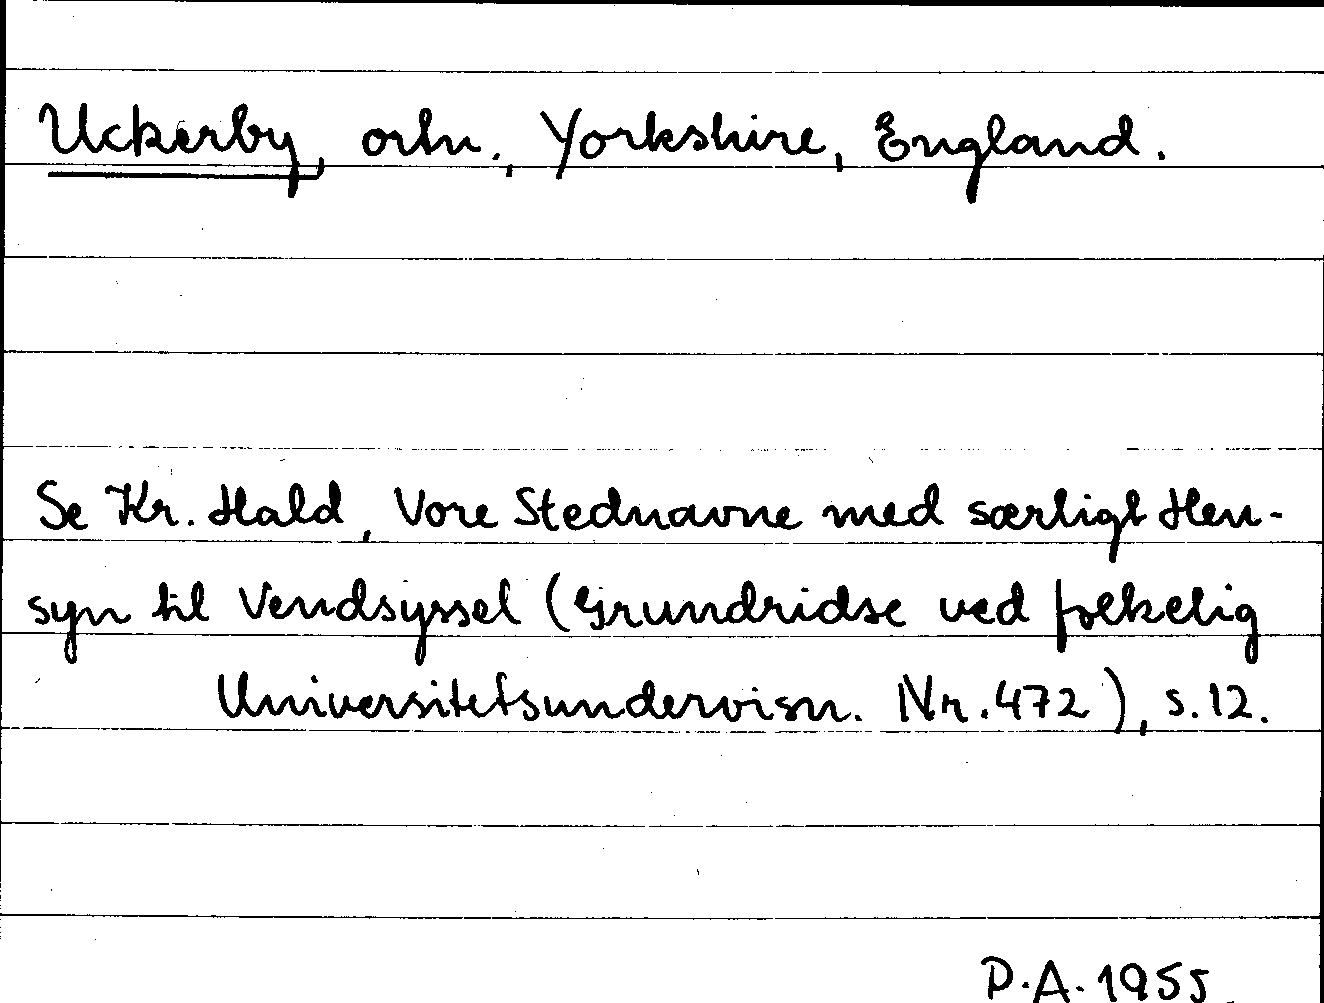 Uckerby, orhn., Yorkshire, England.
Se Kr. Hald, Vore Stednavne med særligt Hen-
syn til Vendsyssel (Grundridse ved folkelig
Universitetsundervisn. Nr. 472), s. 12.
P.A. 1955.